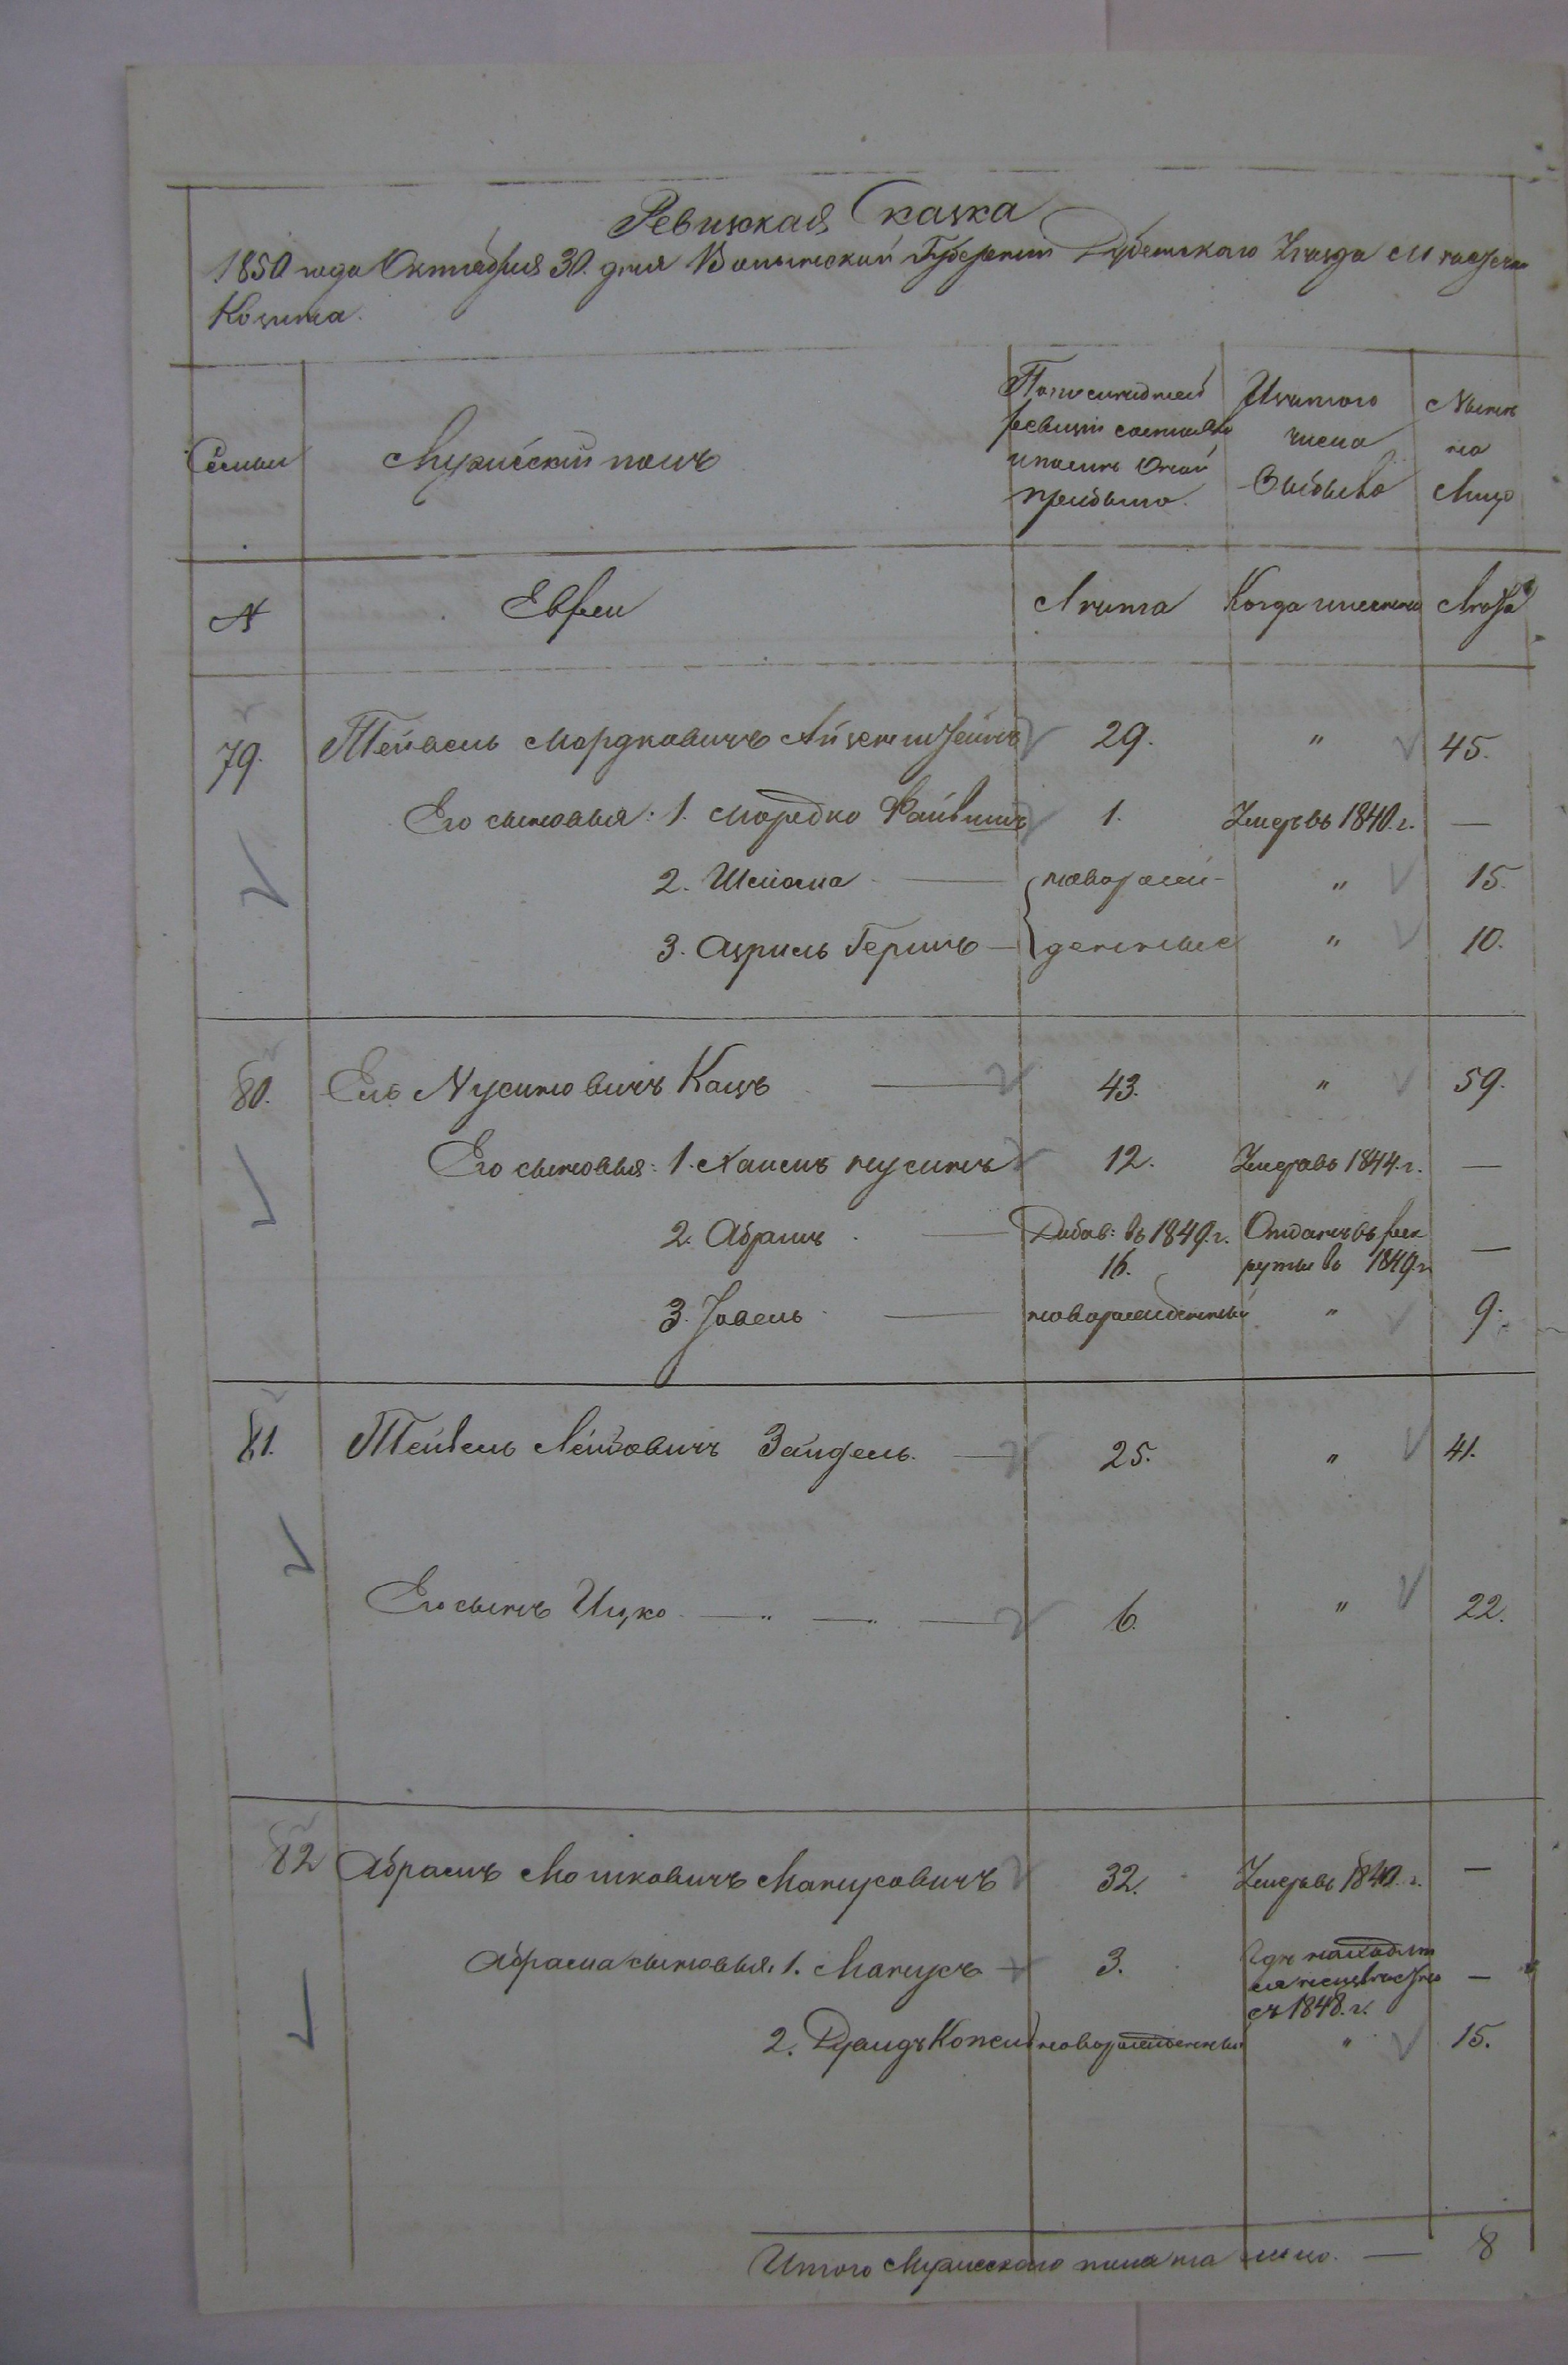 Ревижская Сказка
1850 года Октября 30. дня Волынской Губернии Дубенскаго Уезда Местечка
Козина.
Семьи
Мужеский полъ
По последней
ревизии состояло
и после оной
прибыло.
Изъ того
числа
Выбыло
Ныне
на
Лицо
№
Евреи
Лета
Когда именно
Лета
79. Тейвель Мордковичъ 29. " 45.
Его сыновья: 1. Мордко 1. Умеръ въ 1840. г. —
2. Шейома — новорож- " 15.
3. Азриль Гершъ — денные " 10.
80. Ель Нусиновичъ Кацъ — 43. " 59.
Его сыновья: 1. Хаимъ нусинъ 12. Умеръ въ 1844. г. —
2. Абрамъ — Добав: въ 1849. г. Отданъ въ рек
16. руты въ 1849. г —
3. Іовель — новорожденный " 9.
81. Тейвель Лейбовичъ Зайдель. — 25. " 41.
Его сынъ Ицко — " — " — 6. " 22.
82 Абрамъ Мошковичъ Манусовичъ 32. Умеръ въ 1840. г. —
Абрама сыновья: 1. Манусъ — 3. Где находит
ся неизвестно —
съ 1848. г.
2. новорожденный " 15.
Итого Мужескаго пола на лицо. — 8